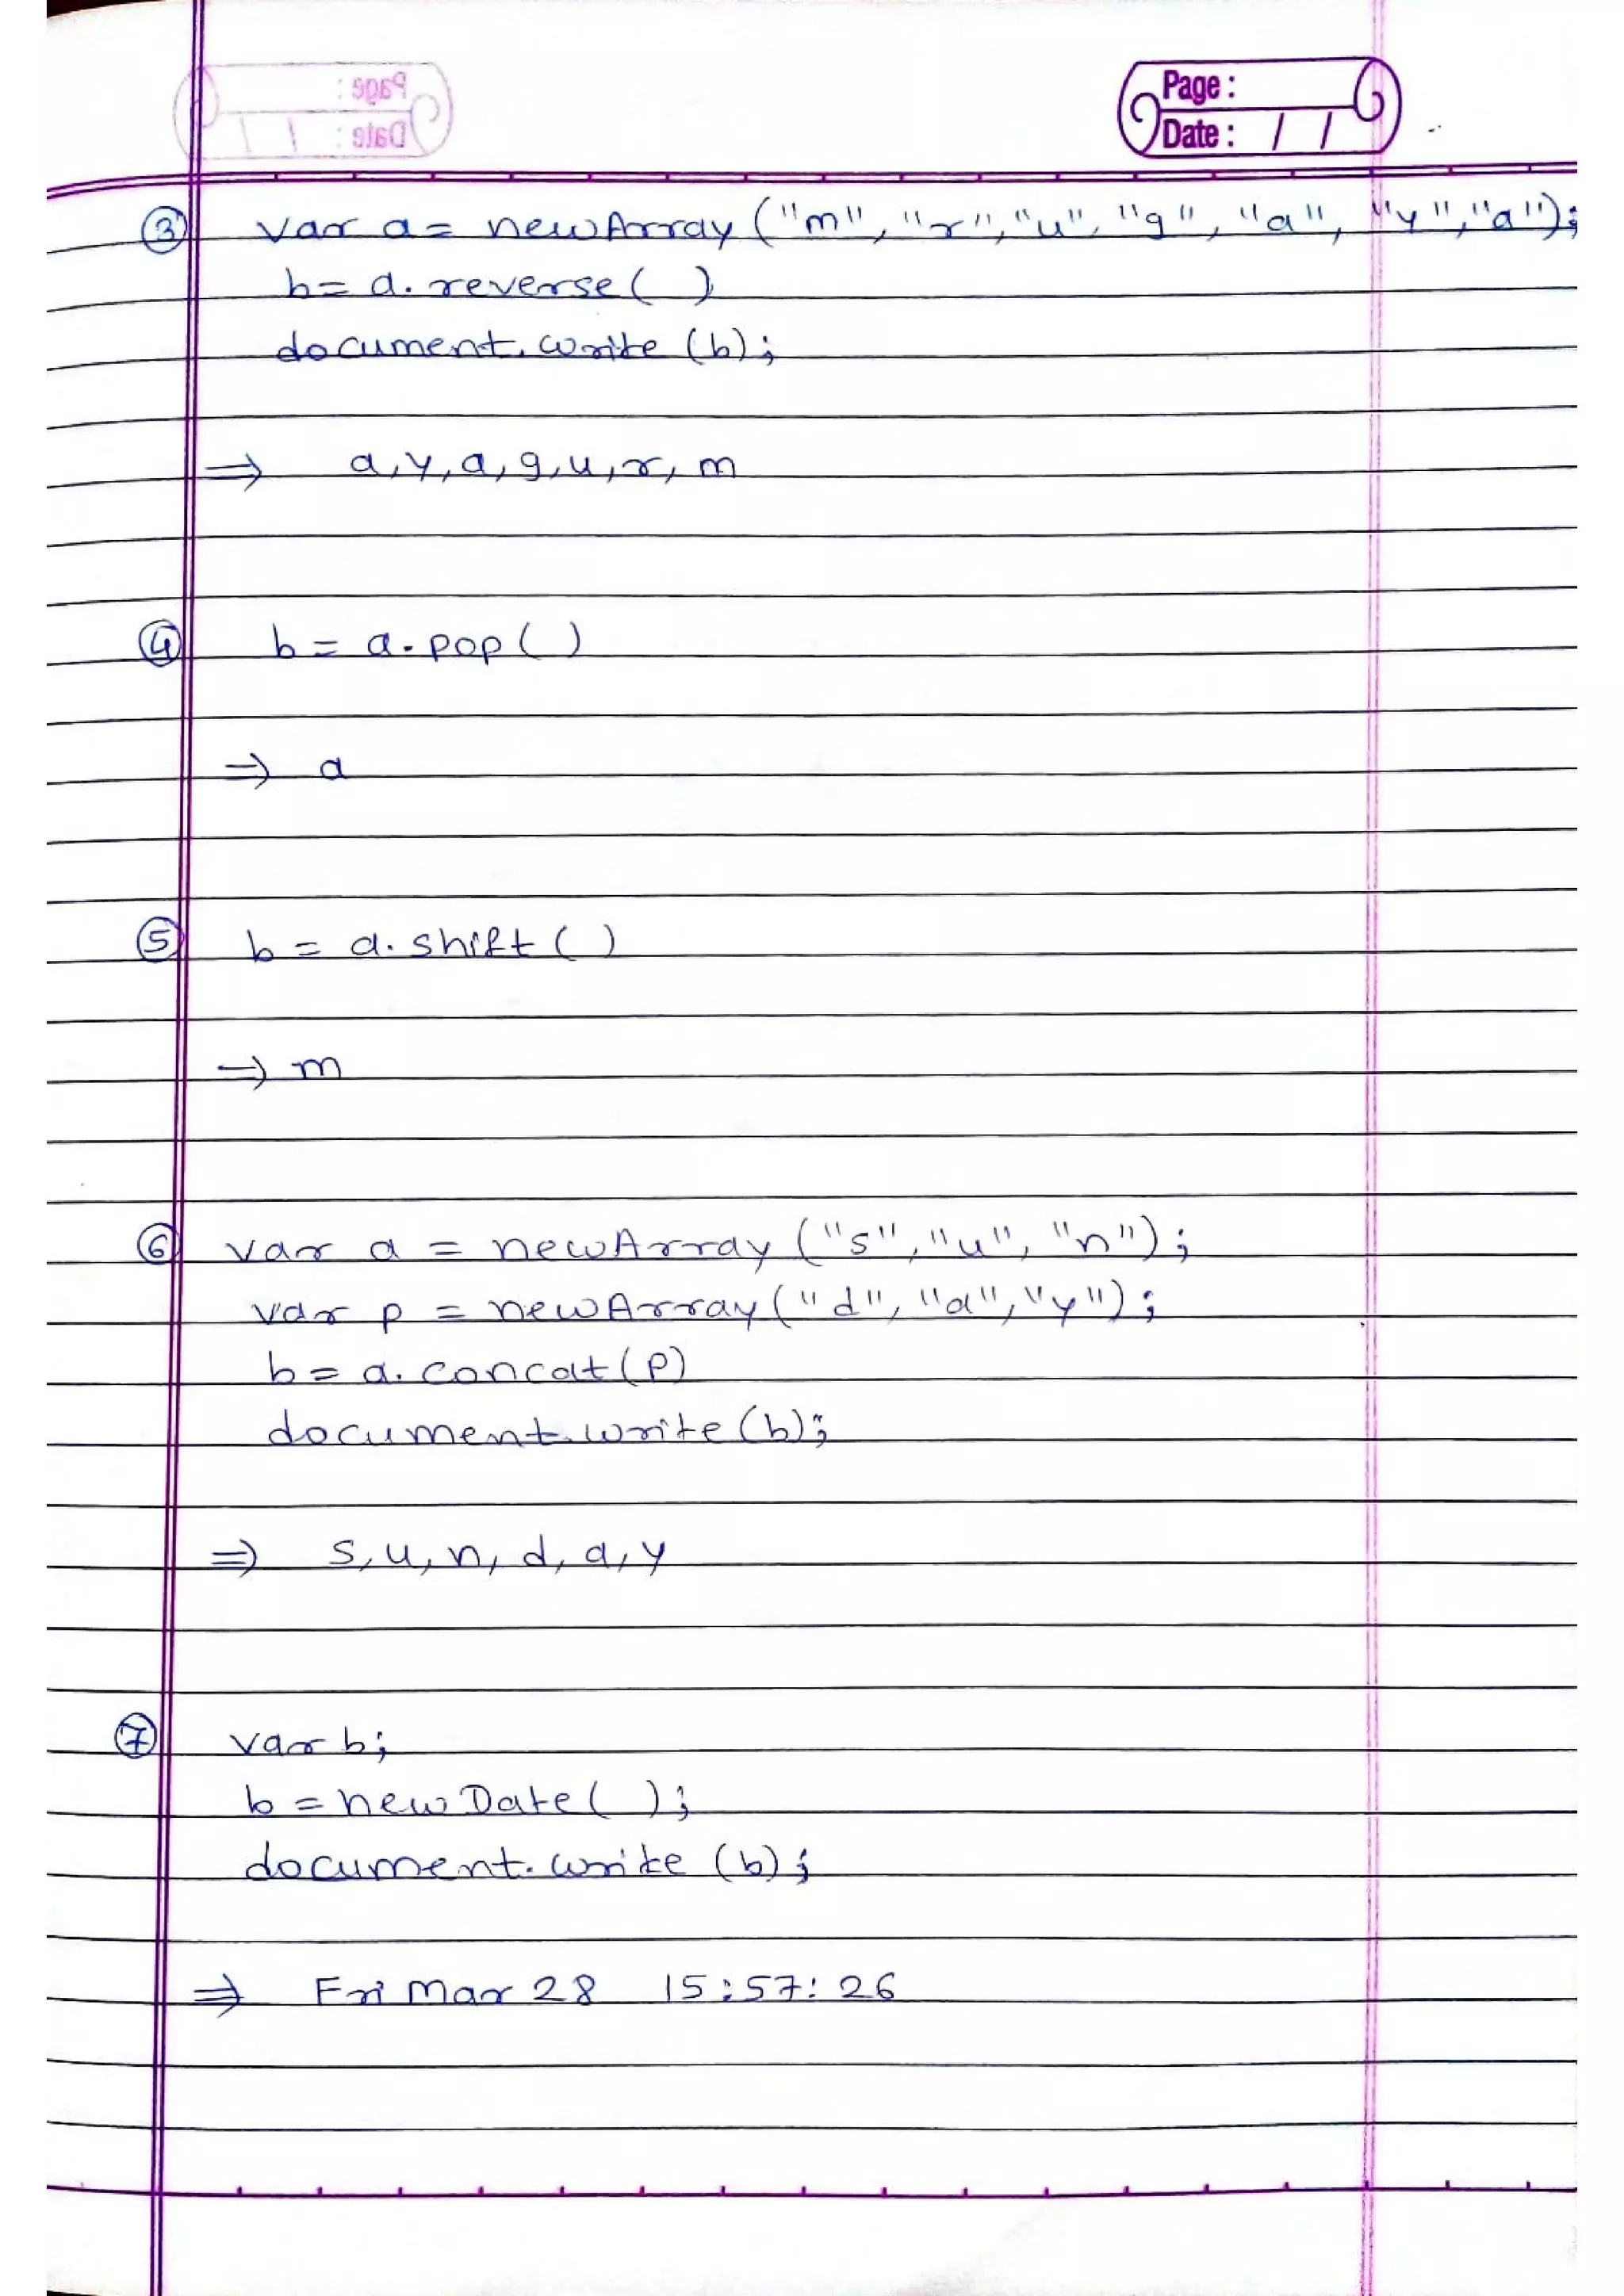 Page :
Date : / /
③ var a = newArray ("m", "r", "u", "g", "a", "y", "a");
b = a. reverse ( )
document. write (b);
⇒ a, y, a, g, u, r, m
④ b = a. pop ( )
⇒ a
⑤ b = a. shift ( )
⇒ m
⑥ var a = newArray ("s", "u", "n");
var p = newArray ("d", "a", "y");
b = a. concat (p)
document. write (b);
⇒ s, u, n, d, a, y
⑦ var b;
b = new Date ( );
document. write (b);
⇒ Fri Mar 28 15:57:26